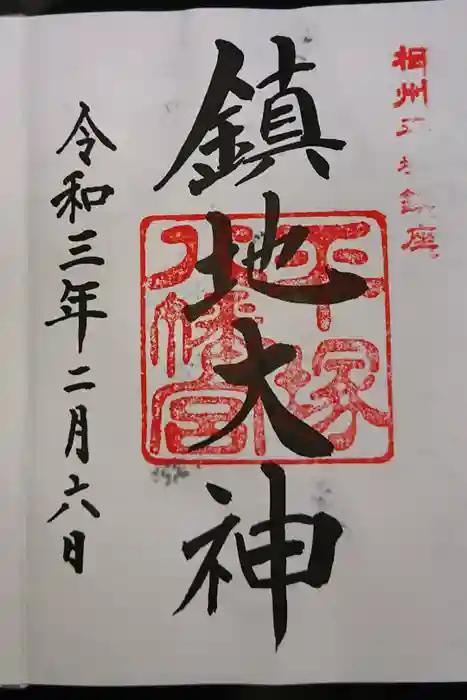 鎮地大神
平塚
八幡宮
令和三年二月六日